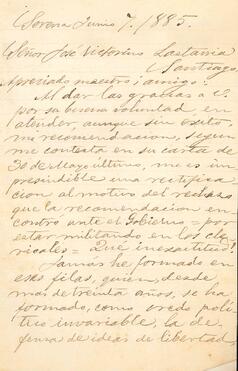 Serena Junio 7./1885.
Señor José Victorino Lastarria
Santiago.
Apreciado maestro i amigo:
Al dar las gracias a U.
por su buena voluntad en
atender, aunque sin éxito,
mi recomendacion, segun
me contesta en su carta de
30 de Mayo último, me es im
presindible una rectifica
cion al motivo del rechazo
que la recomendacion en
contró ante el Gobierno = por
estar militando en los cle
ricales = Qué inesactitud!
Jamás he formado en
esas filas, quien, desde
mas de treinta años, se ha
formado, como credo polí
tico invariable, la de
fensa de ideas de libertad